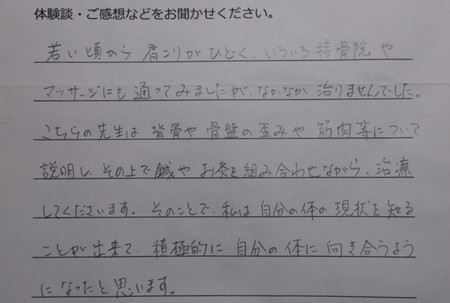 体験談・ご感想などをお聞かせください。
若い頃から肩こりがひどく、いろいろ接骨院や
マッサージにも通ってみましたが、なかなか治りませんでした。
こちらの先生は背骨や骨盤の歪みや筋肉等について
説明し、その上で鍼やお灸を組み合わせながら、治療
してくださいます。そのことで、私は自分の体の現状を知る
ことが出来て、積極的に自分の体に向き合うよう
になったと思います。